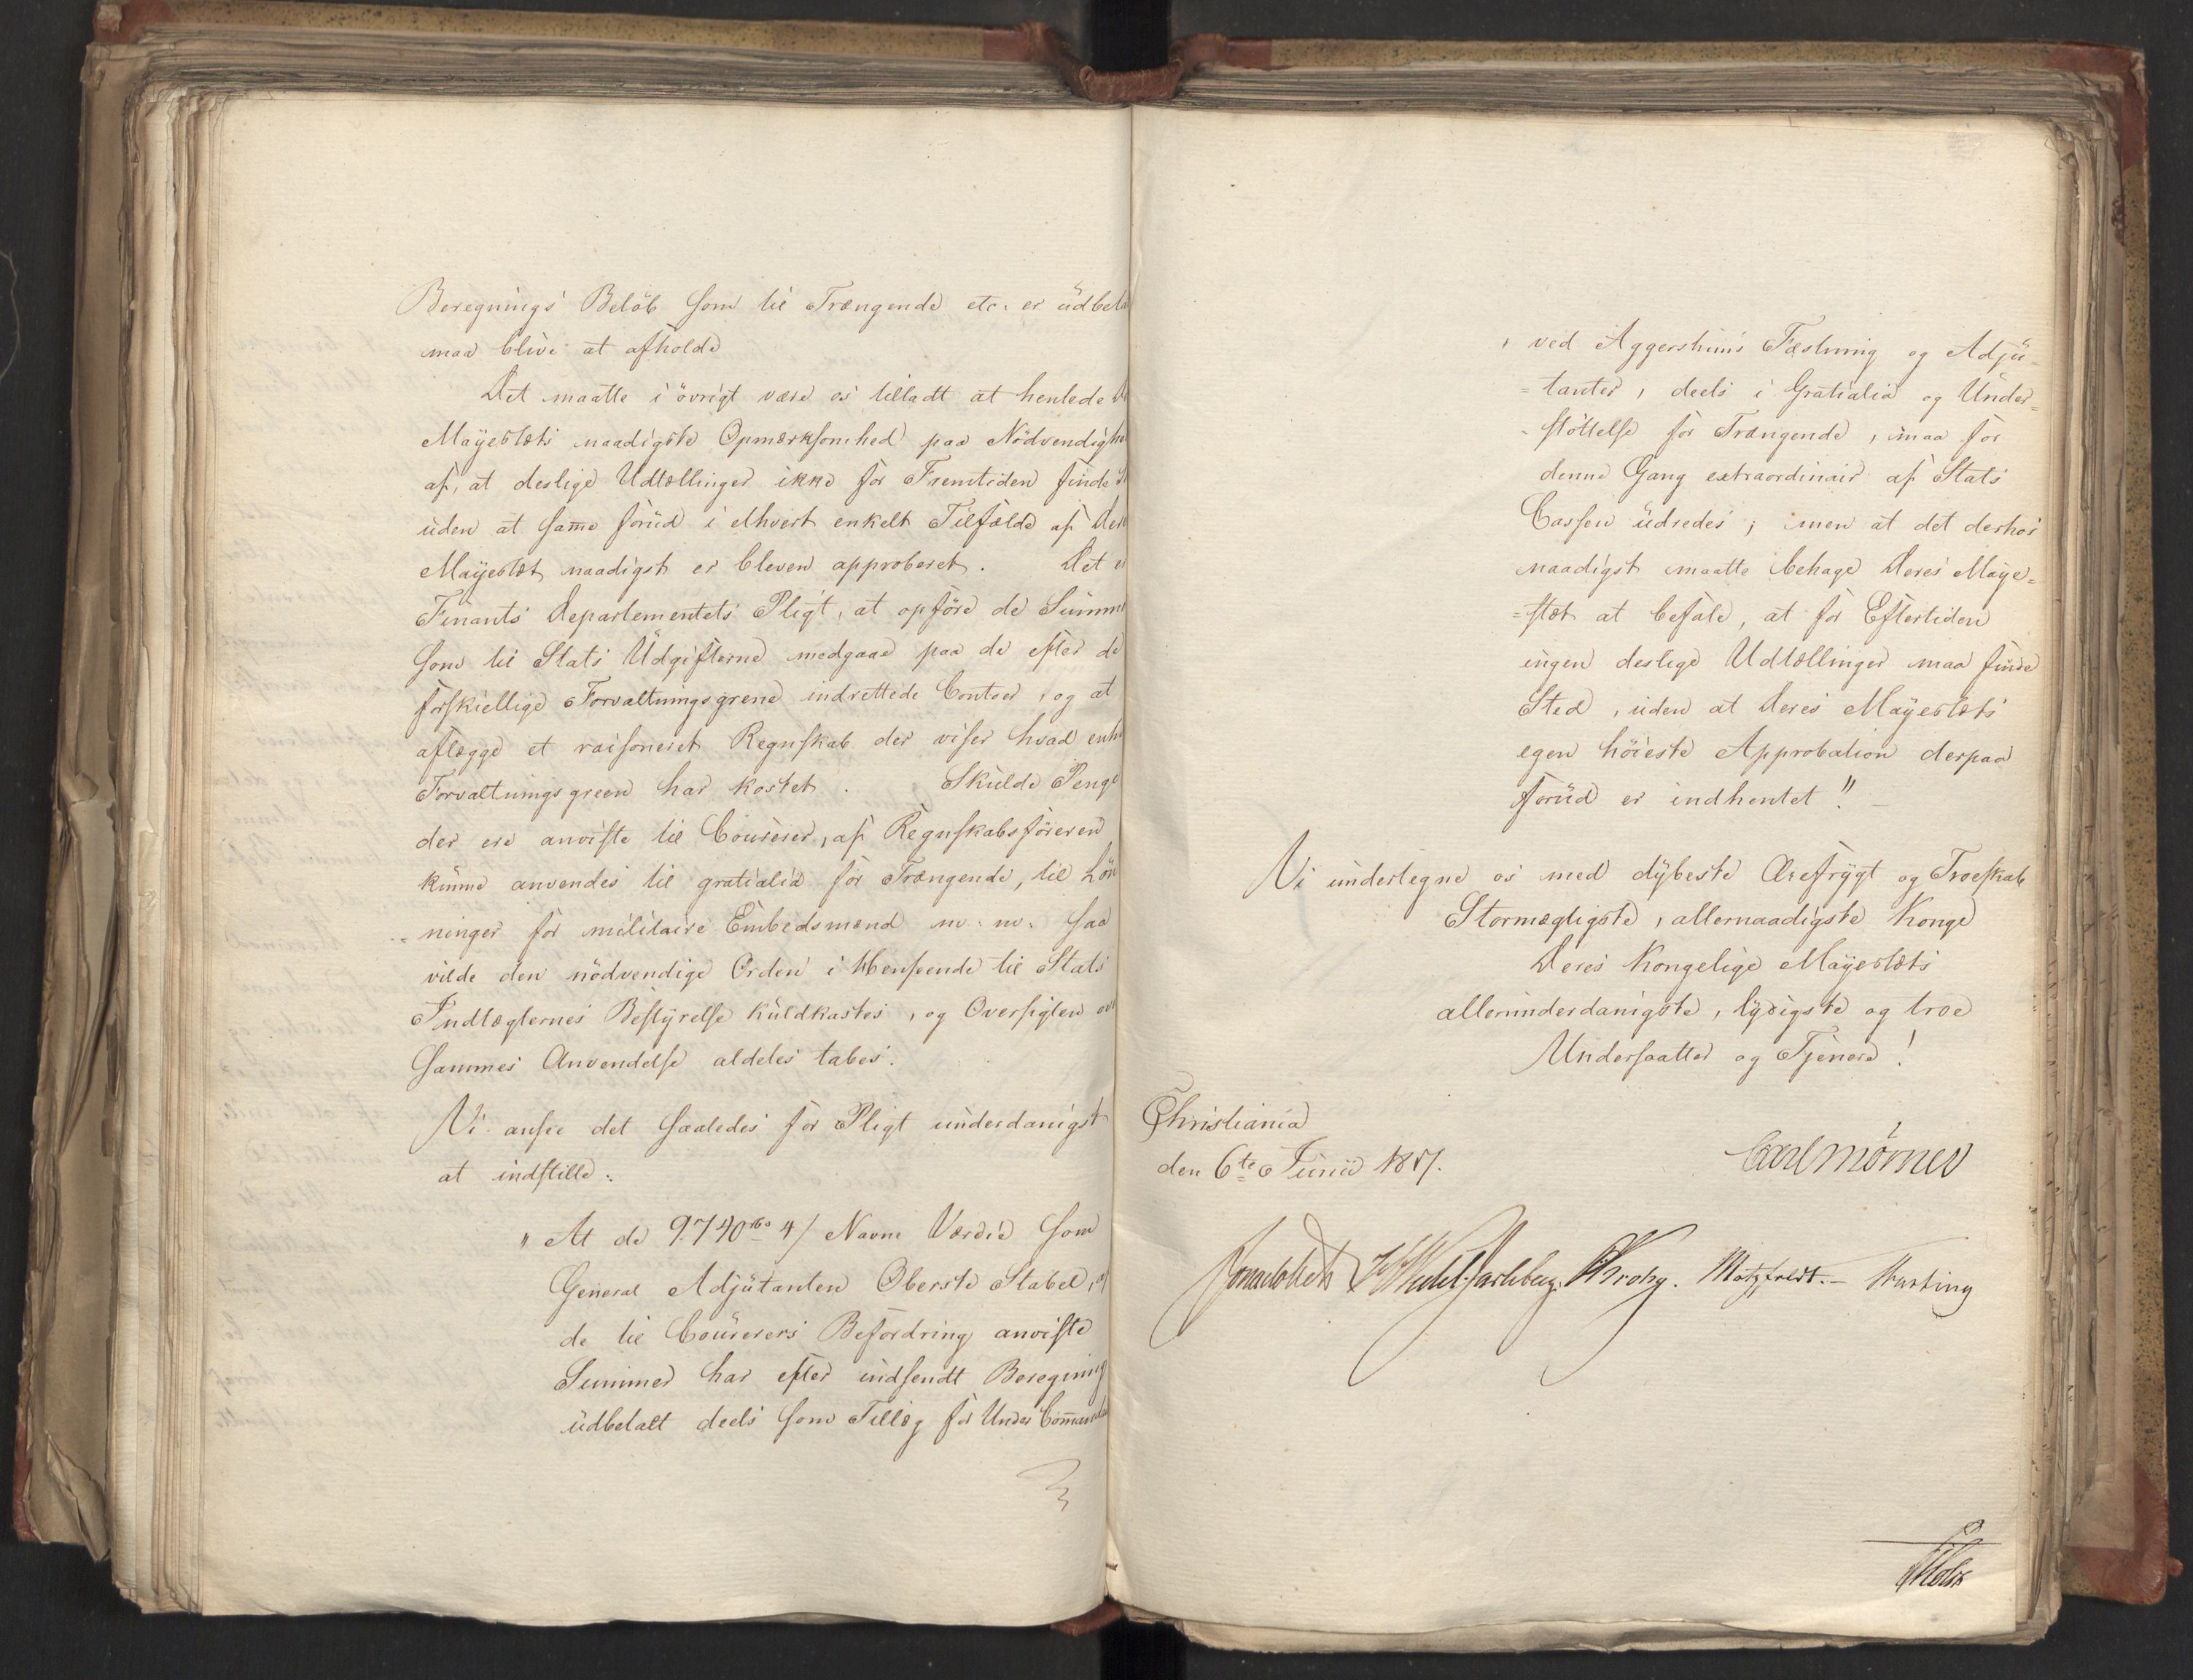 Beregnings Beløb som til Trængende etc. er udbeta
maa blive at afholde
Det maatte i övrigt være os tilladt at henlede D
Mayestæts naadigste Opmærksomhed paa Nödvendighe
af, at deslige Udtællinger ikke for Fremtiden finde S
uden at same forud i ethvert enkelt Tilfælde af Der
Mayestæt naadigst er bleven approberet. Det e
Finants Departementets Pligt, at opföre de Summe
som til Stats Udgifterne medgaae paa de efter de
forskiellige Forvaltningsgrene indrettede Contoer, og at
aflægge et raisoneret Regnskab der viser hvad enhv
Forvaltningsgreen har kostet. Skulde Penge
der ere anviste til Courerer, af Regnskabsföreren
kunne anvendes til gratialia for Trængende, til Lön
=ninger for militaire Embedsmænd m. m. saa
vilde den nödvendige Orden i Henseende til Stats
Indtægternes Bestyrelse kuldkastes, og Oversigten ov
sammes Anvendelse aldeles tabes.
Vi ansee det saaledes for Pligt underdanigst
at indstille:
" At de 9740 4/ Navne Værdie som
General Adjutanten Oberste Stabel, af
de til Courerers Befordring anviste
Summer har efter indsendt Beregning
udbetalt deels som Tillæg for Under Comman
, ved Aggershuus Fæstning og Adju=
=tanter, deels i Gratialia og Under=
=stöttelse for Trængende, maa for
denne Gang extraordinair af Stats
Cassen udredes; men at det derhos
naadigst maatte behage Deres Maye=
=stæt at befale, at for Eftertiden
ingen deslige Udtællinger maa finde
Sted, uden at Deres Mayestæts
egen höieste Approbation derpaa
forud er indhentet!!
Vi undertegne os med dybeste Ærefrygt og Troeskab
Stormægtigste, allernaadigste Konge
Deres Kongelige Mayestæts
allerunderdanigste, lydigste og troe
Undersaatter og Tjenere!
Christiania
den 6te Junii 1817.
Carl Mörner
Jonas Collett HWedel Jarlsberg. Krohg. Motzfeldt. Hasting
Holst